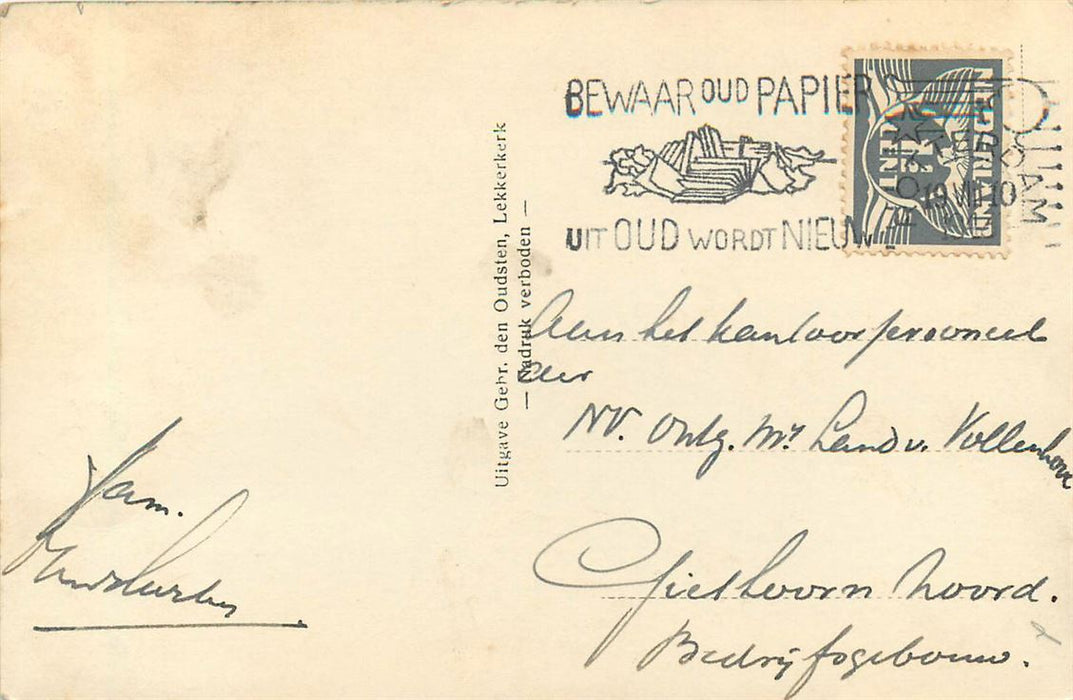 BEWAAR OUD PAPIER
UIT OUD WORDT NIEUW
19 VII 10
Uitgave Gebr. den Oudsten, Lekkerkerk
— Nadruk verboden —
Aan het kantoorpersoneel
der
NV. Ontg. Mij Land v. Vollenhove
Giethoorn Noord.
Bedrijfsgebouw.
Fam.